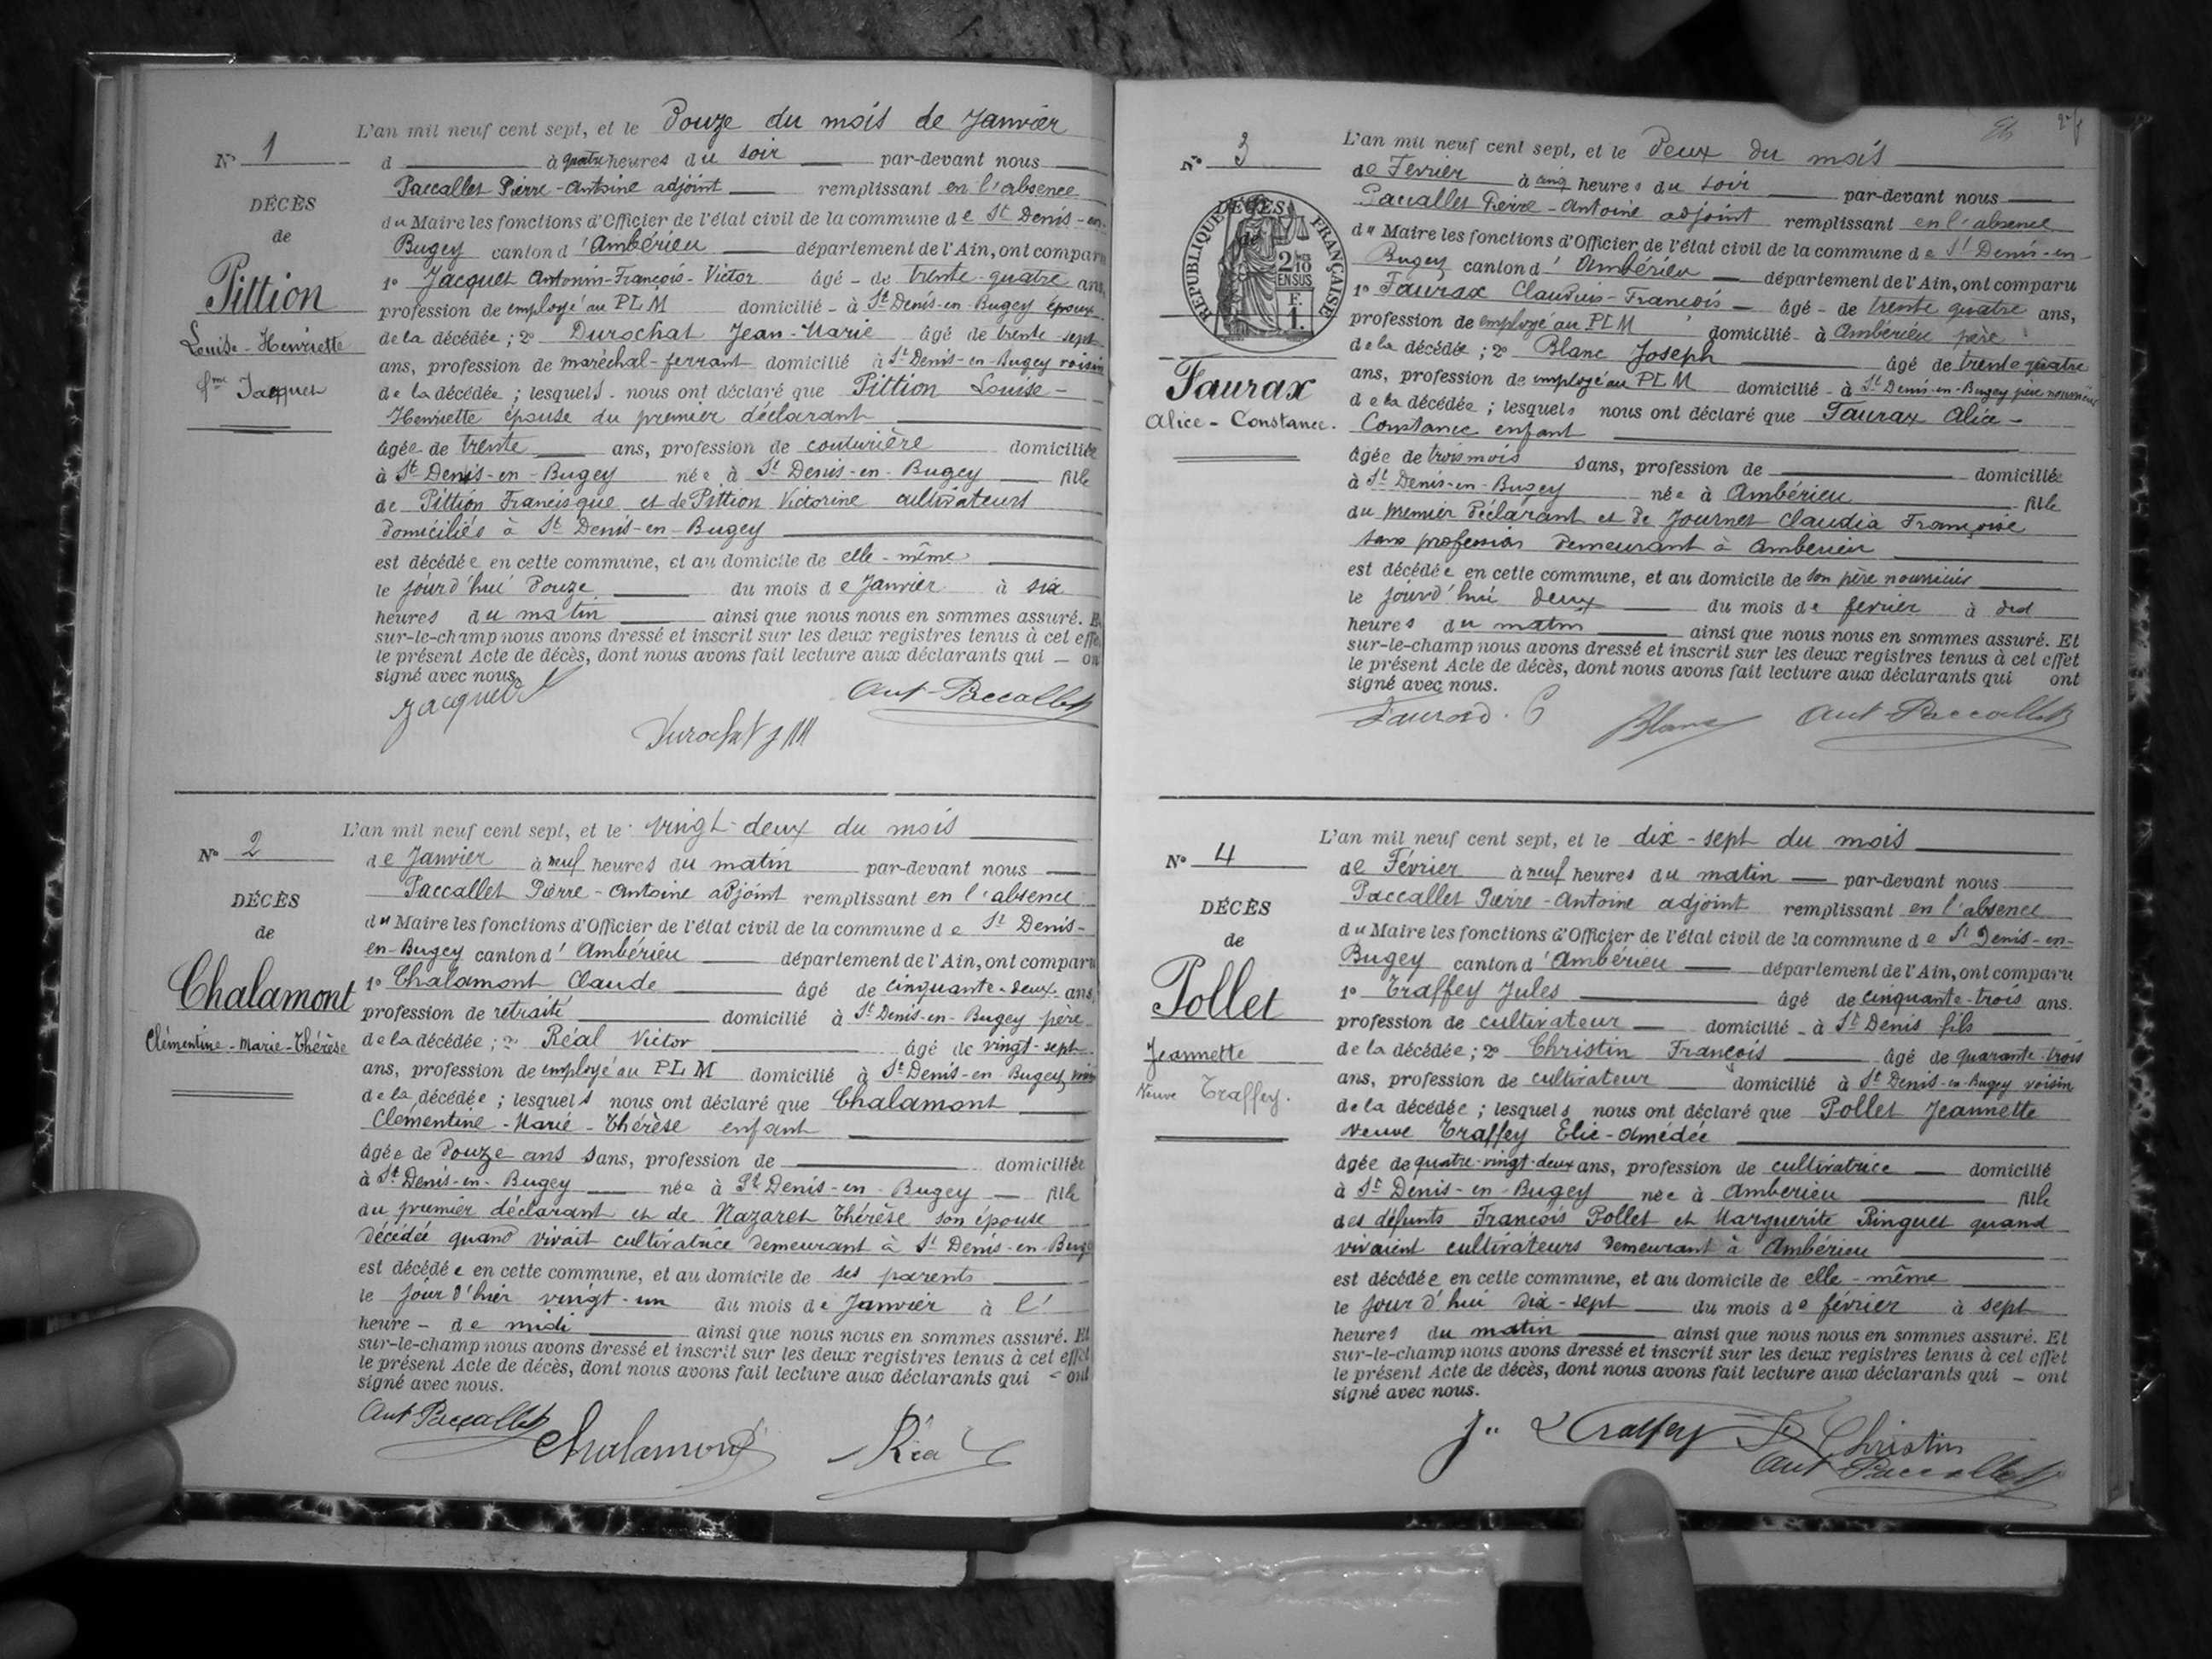 L'an mil neuf cent sept, et le Douze du mois de Janvier
N° 1
d à quatre heures du soir par-devant nous
Paccallet Pierre-Antoine adjoint remplissant en l'absence
DÉCÈS
du Maire les fonctions d'Officier de l'état civil de la commune de St Denis-en-
de
Bugey canton d'Ambérieu département de l'Ain, ont comparu
Pittion
1° Jacquet Antonin-François-Victor âgé - de trente-quatre ans,
profession de employé au PLM domicilié - à St Denis-en-Bugey époux
Louise-Henriette
de la décédée ; 2° Durochat Jean-Marie âgé de trente sept
ans, profession de maréchal-ferrant domicilié à St Denis-en-Bugey voisin
fme Jacquet
de la décédée ; lesquels nous ont déclaré que Pittion Louise-
Henriette épouse du premier déclarant
âgée de trente ans, profession de couturière domiciliée
à St Denis-en-Bugey née à St Denis-en-Bugey fille
de Pittion Francisque et de Pittion Victorine cultivateurs
domiciliés à St Denis-en-Bugey
est décédée en cette commune, et au domicile de elle-même
le jourd'hui Douze du mois de Janvier à six
heures du matin ainsi que nous nous en sommes assuré. E
sur-le-champ nous avons dressé et inscrit sur les deux registres tenus à cet effe
le présent Acte de décès, dont nous avons fait lecture aux déclarants qui - on
signé avec nous.
Jacquet
Ant Paccallet
Durochat J M
L'an mil neuf cent sept, et le vingt-deux du mois
N° 2
de Janvier à neuf heures du matin par-devant nous
Paccallet Pierre-Antoine adjoint remplissant en l'absence
DÉCÈS
du Maire les fonctions d'Officier de l'état civil de la commune de St Denis-
de
en-Bugey canton d'Ambérieu département de l'Ain, ont comparu
Chalamont
1° Chalamont Claude âgé de cinquante-deux ans,
profession de retraité domicilié à St Denis-en-Bugey père
Clémentine-Marie-Thérèse
de la décédée ; 2° Réal Victor âgé de vingt-sept
ans, profession de employé au PLM domicilié à St Denis-en-Bugey
de la décédée ; lesquels nous ont déclaré que Chalamont
Clémentine-Marie-Thérèse enfant
âgée de Douze ans sans, profession de domiciliée
à St Denis-en-Bugey née à St Denis-en-Bugey fille
du premier déclarant et de Nazaret Thérèse son épouse
décédée quand vivait cultivatrice demeurant à St Denis-en-Bug
est décédée en cette commune, et au domicile de ses parents
le jour d'hier vingt-un du mois de Janvier à l'
heure - de midi ainsi que nous nous en sommes assuré. Et
sur-le-champ nous avons dressé et inscrit sur les deux registres tenus à cet effet
le présent Acte de décès, dont nous avons fait lecture aux déclarants qui - ont
signé avec nous.
Ant Paccallet Chalamont Réal
L'an mil neuf cent sept, et le Deux du mois
N° 3
de Fevrier à cinq heures du soir par-devant nous
Paccallet Pierre-Antoine adjoint remplissant en l'absence
DÉCÈS
de
RÉPUBLIQUE FRANÇAISE
2/10
EN SUS
F.
1.
du Maire les fonctions d'Officier de l'état civil de la commune de St Denis-en-
Bugey canton d'Ambérieu département de l'Ain, ont comparu
1° Faurax Claudius-François - âgé - de trente quatre ans,
profession de employé au PLM domicilié - à Ambérieu père
de la décédée ; 2° Blanc Joseph âgé de trente quatre
Faurax
ans, profession de employé au PLM domicilié - à St Denis-en-Bugey père nourricier
Alice-Constance.
de la décédée ; lesquels nous ont déclaré que Faurax Alice-
Constance enfant
âgée de trois mois sans, profession de domiciliée
à St Denis-en-Bugey née à Ambérieu fille
du premier déclarant et de Journet Claudia Françoise
sans profession demeurant à Ambérieu
est décédée en cette commune, et au domicile de son père nourricier
le jourd'hui deux du mois de fevrier à
heures du matin ainsi que nous nous en sommes assuré. Et
sur-le-champ nous avons dressé et inscrit sur les deux registres tenus à cet effet
le présent Acte de décès, dont nous avons fait lecture aux déclarants qui ont
signé avec nous.
Blanc Ant Paccallet
L'an mil neuf cent sept, et le dix-sept du mois
N° 4
de Février à neuf heures du matin par-devant nous
Paccallet Pierre-Antoine adjoint remplissant en l'absence
DÉCÈS
du Maire les fonctions d'Officier de l'état civil de la commune de St Denis-en-
de
Bugey canton d'Ambérieu département de l'Ain, ont comparu
Pollet
1° Traffey Jules âgé de cinquante-trois ans.
profession de cultivateur domicilié - à St Denis fils
Jeannette
de la décédée ; 2° Christin François âgé de quarante-trois
ans, profession de cultivateur domicilié à St Denis-en-Bugey voisin
Veuve Traffey.
de la décédée ; lesquels nous ont déclaré que Pollet Jeannette
veuve Traffey Elie-Amédée
âgée de quatre-vingt-deux ans, profession de cultivatrice domicilié
à St Denis-en-Bugey née à Amberieu fille
des défunts François Pollet et Marguerite Pinguet quand
vivaient cultivateurs demeurant à Ambérieu
est décédée en cette commune, et au domicile de elle-même
le jour d'hui dix-sept du mois de février à sept
heures du matin ainsi que nous nous en sommes assuré. Et
sur-le-champ nous avons dressé et inscrit sur les deux registres tenus à cet effet
le présent Acte de décès, dont nous avons fait lecture aux déclarants qui - ont
signé avec nous.
Traffey Christin
Ant Paccallet